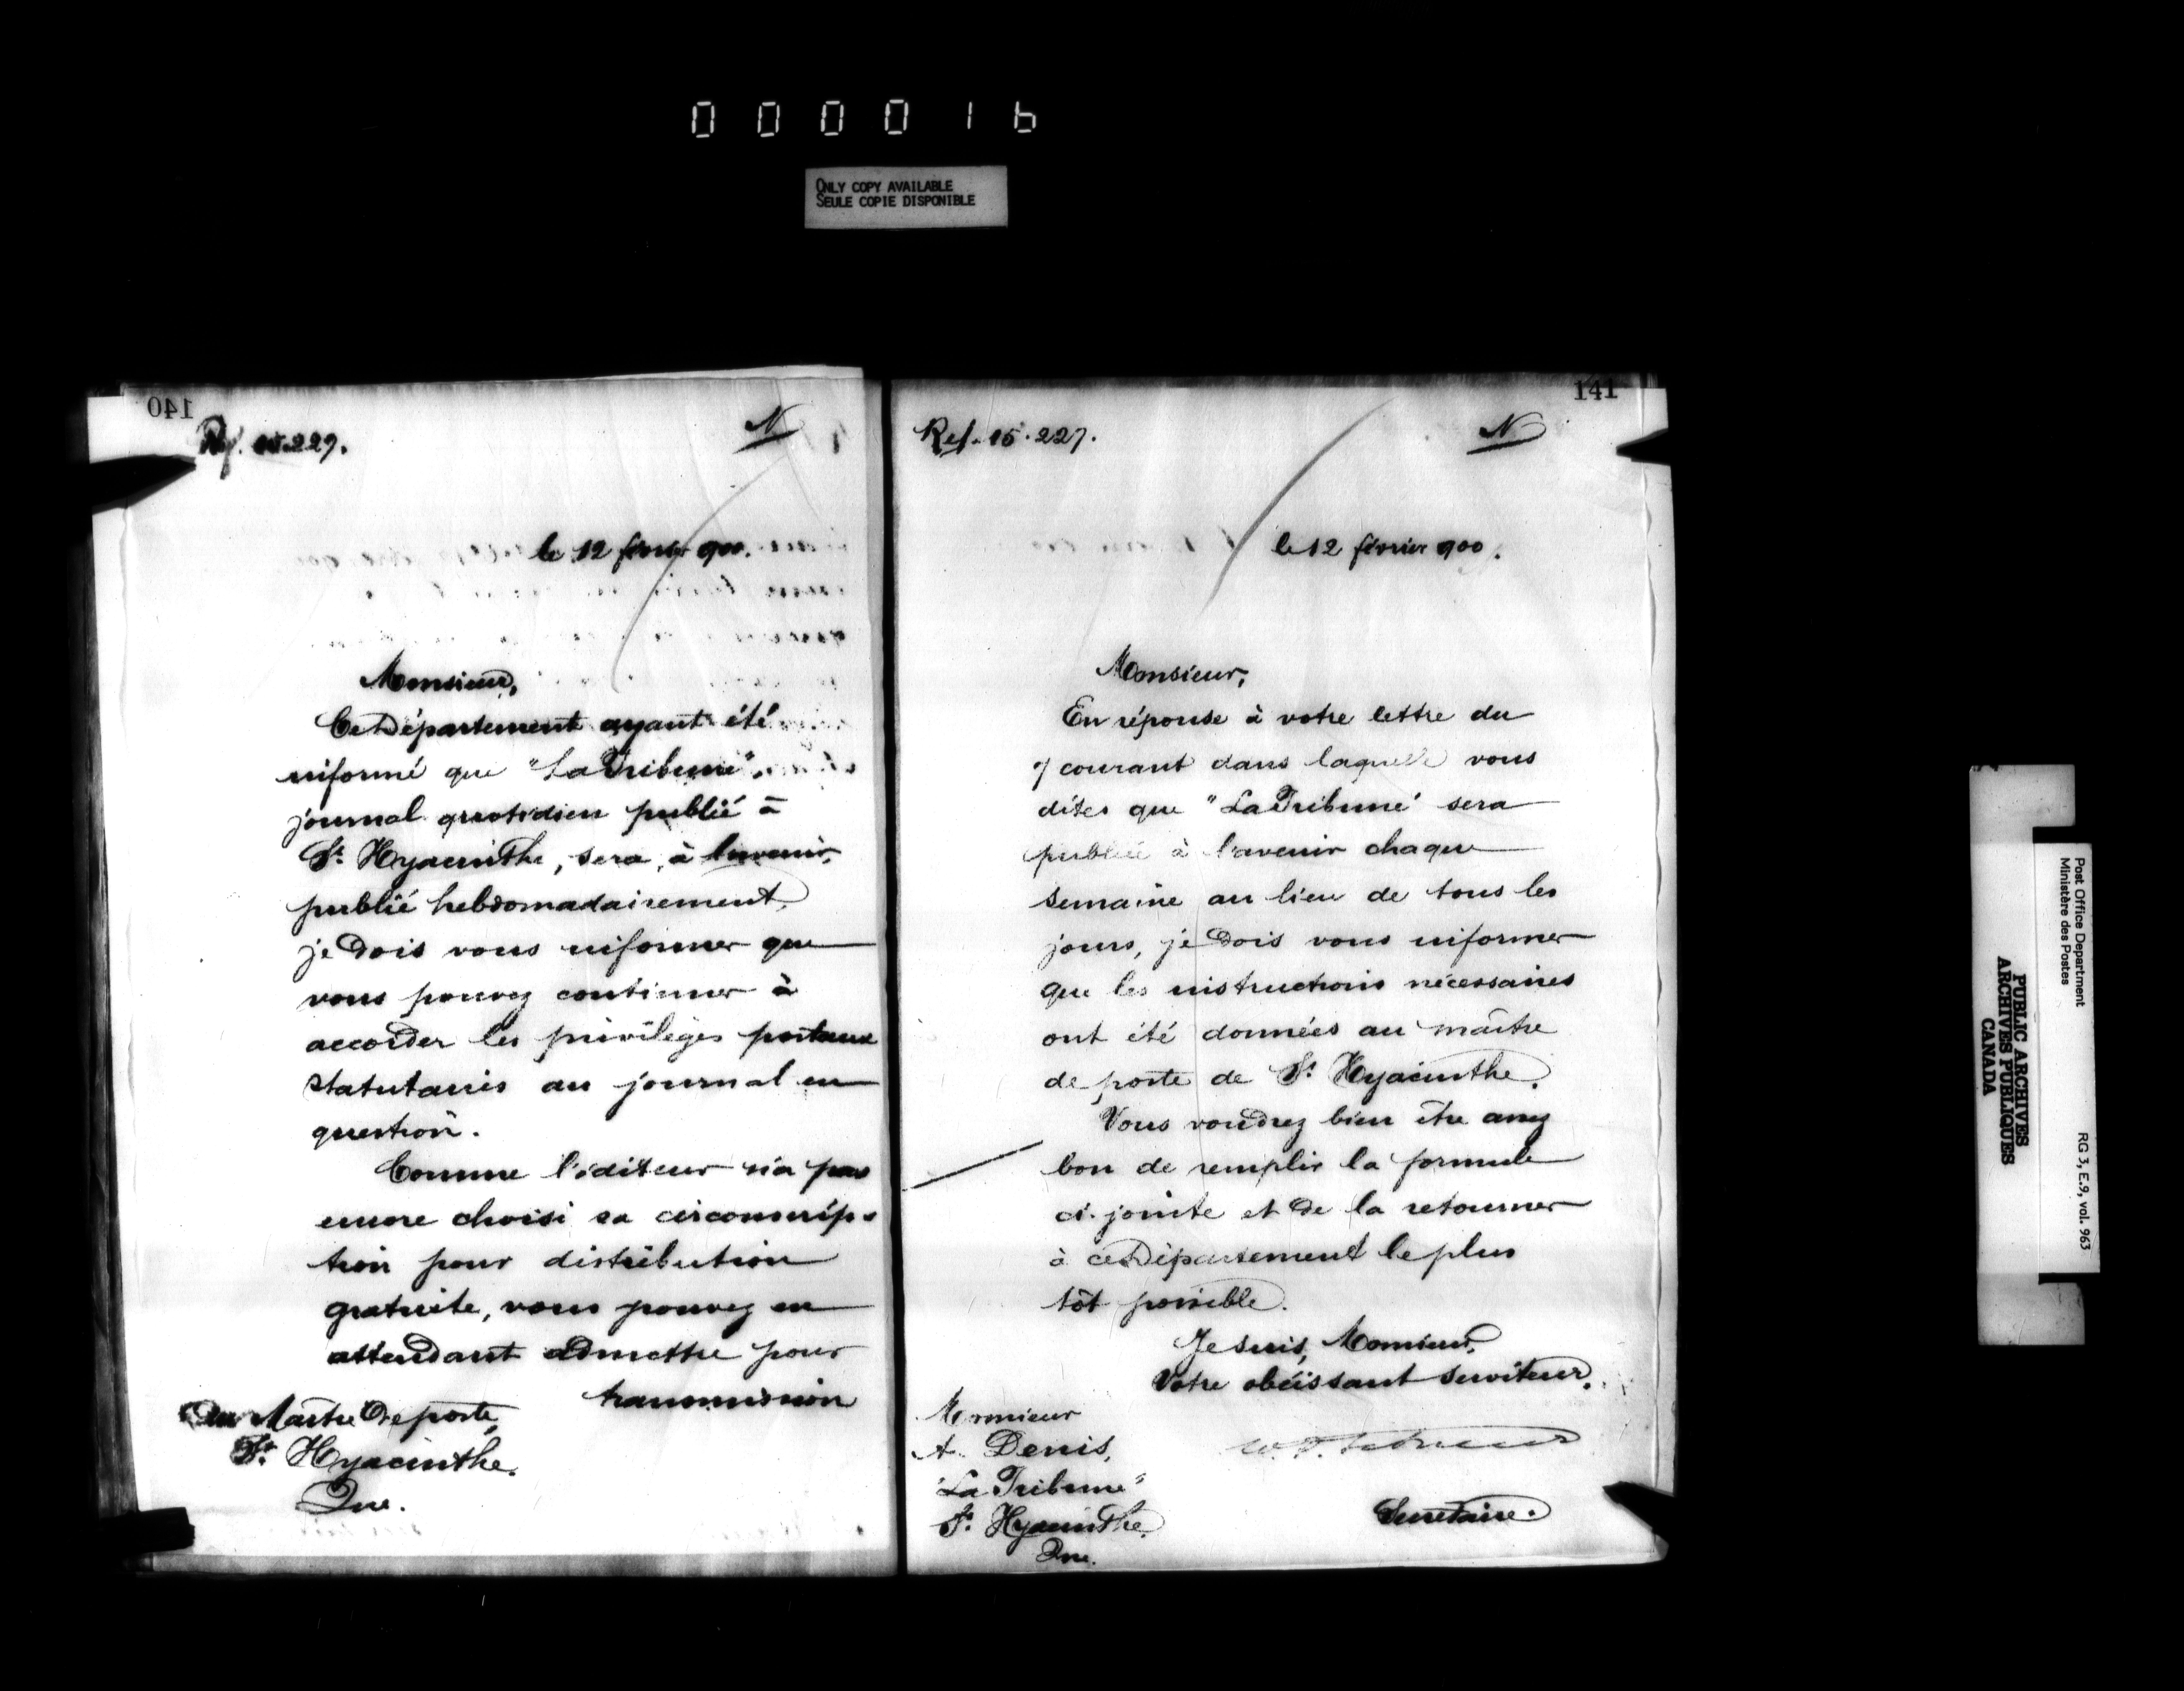 000016
ONLY COPY AVAILABLE
SEULE COPIE DISPONIBLE
140
Ref. 15.227.
N
le 12 février 900.
Monsieur,
Ce Département ayant été
informé que "La Tribune",
journal quotidien publié à
St. Hyacinthe, sera, à l'avenir,
publié hebdomadairement,
je dois vous informer que
vous pouvez continuer à
accorder les privilèges postaux
statutaires au journal en
question.
Comme l'éditeur n'a pas
encore choisi sa circonscrip-
tion pour distribution
gratuite, vous pouvez en
attendant admettre pour
transmission
Au Maître de poste,
St. Hyacinthe.
Que.
141
Ref. 15.227.
N
le 12 février 900.
Monsieur,
En réponse à votre lettre du
7 courant dans laquelle vous
dites que "La Tribune" sera
publiée à l'avenir chaque
semaine au lieu de tous les
jours, je dois vous informer
que les instructions nécessaires
ont été données au maître
de poste de St. Hyacinthe.
Vous voudrez bien être assez
bon de remplir la formule
ci-jointe et de la retourner
à ce Département le plus
tôt possible.
Je suis, Monsieur,
Votre obéissant serviteur.
Secrétaire.
Monsieur
A. Denis,
"La Tribune"
St. Hyacinthe.
Que.
Post Office Department
Ministère des Postes
RG 3, E.9, vol. 963
PUBLIC ARCHIVES
ARCHIVES PUBLIQUES
CANADA